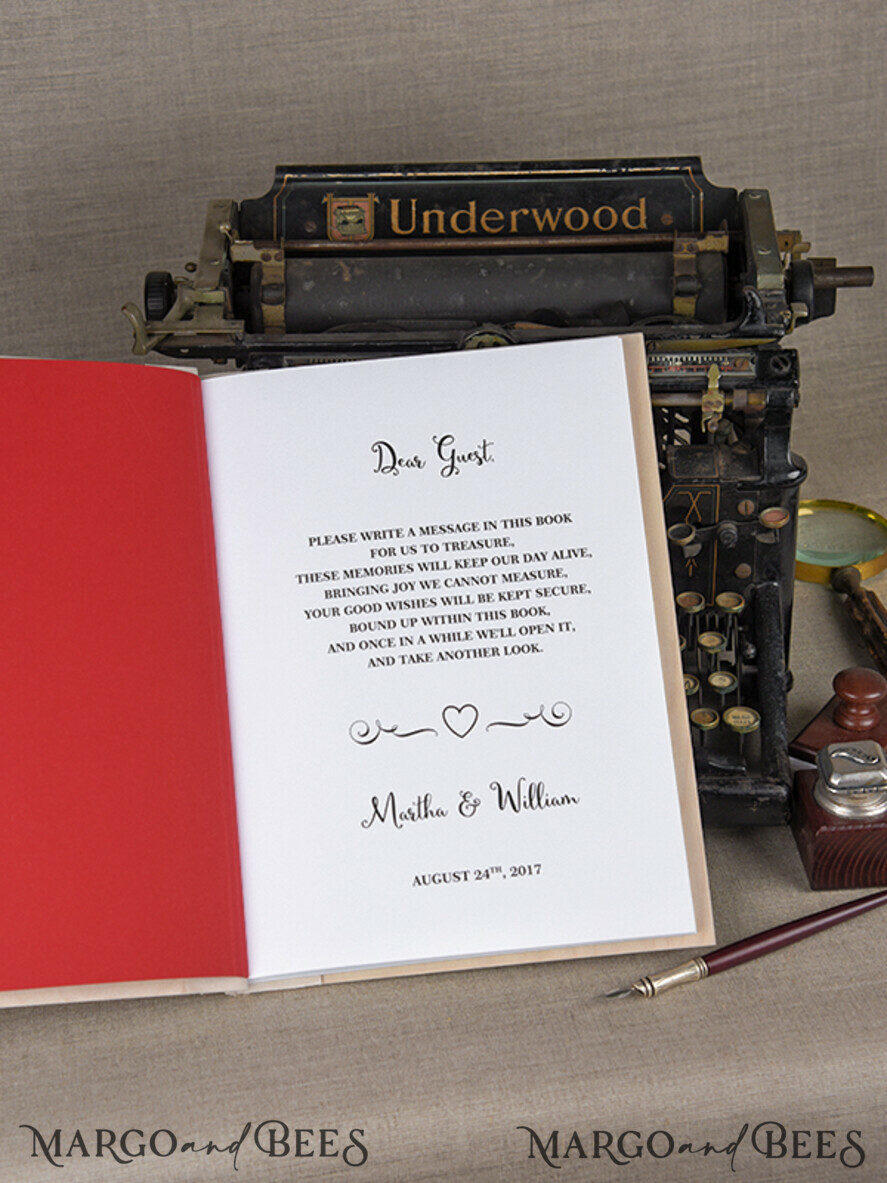 Underwood
Dear Guest,
PLEASE WRITE A MESSAGE IN THIS BOOK
FOR US TO TREASURE,
THESE MEMORIES WILL KEEP OUR DAY ALIVE,
BRINGING JOY WE CANNOT MEASURE,
YOUR GOOD WISHES WILL BE KEPT SECURE,
BOUND UP WITHIN THIS BOOK,
AND ONCE IN A WHILE WE'LL OPEN IT,
AND TAKE ANOTHER LOOK.
Martha & William
AUGUST 24TH, 2017
MARGO and BEES
MARGO and BEES